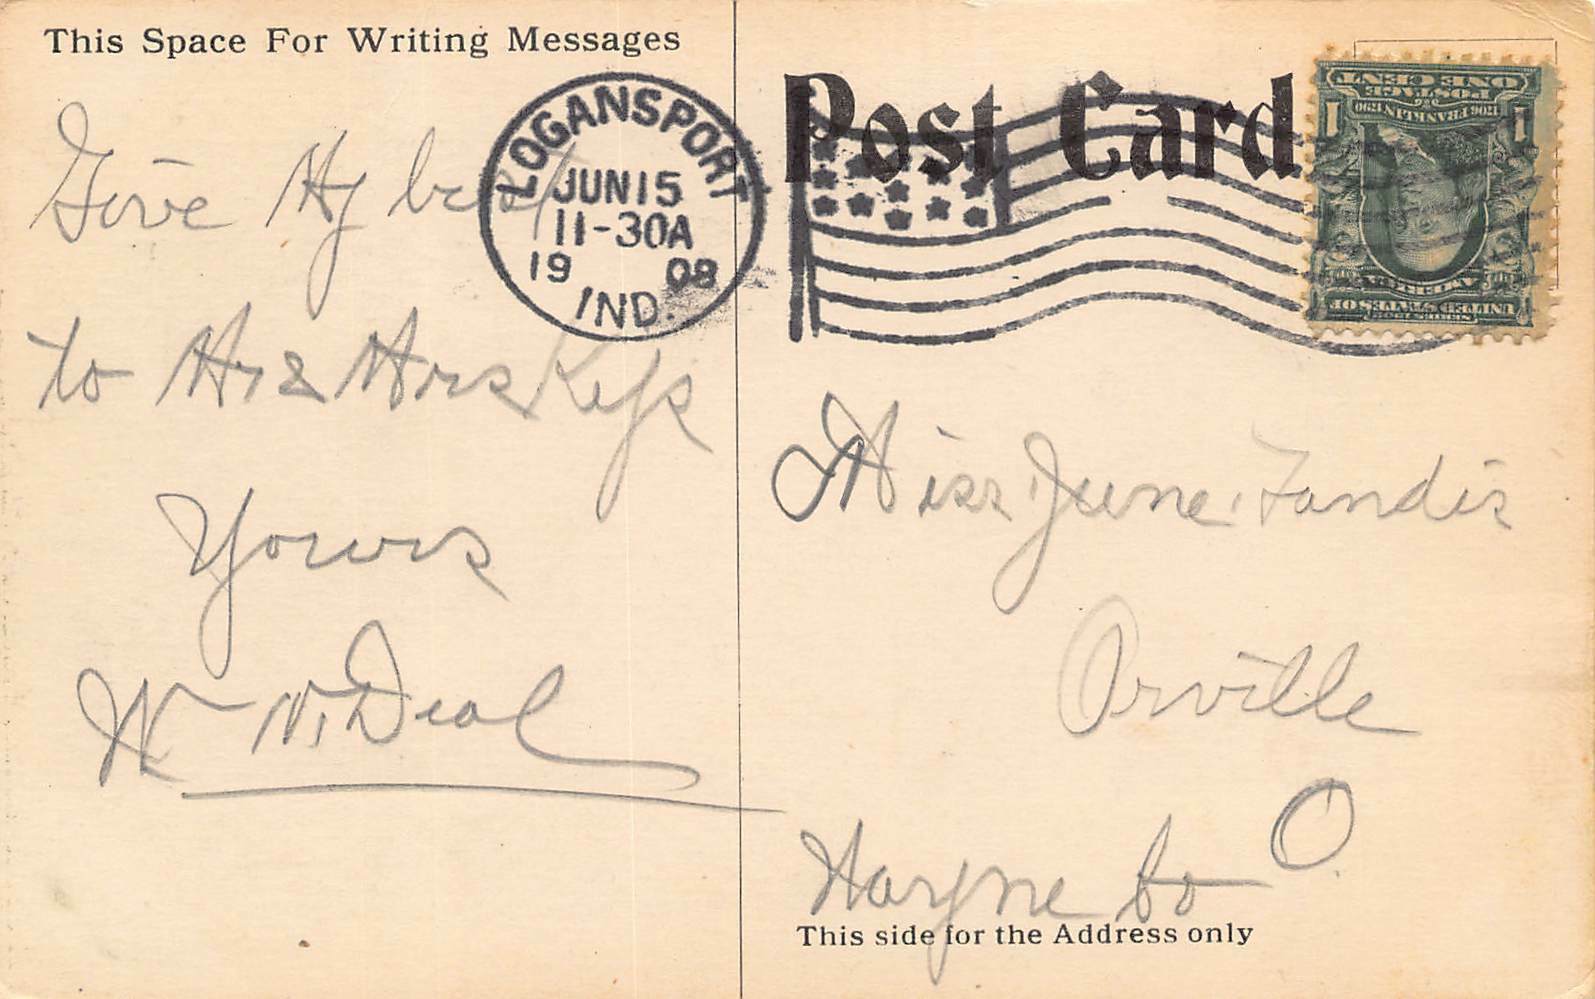 This Space For Writing Messages
Give My best
to Mr & Mrs Keys
Yours
Wm N. Deal
LOGANSPORT
JUN 15
11-30A
19 08
IND.
Post Card
ONE CENT
POSTAGE
1706 FRANKLIN 1790
1 1
SERIES 1902
UNITED STATES OF
AMERICA
Miss June Landis
Orville
O
Wayne Co
This side for the Address only